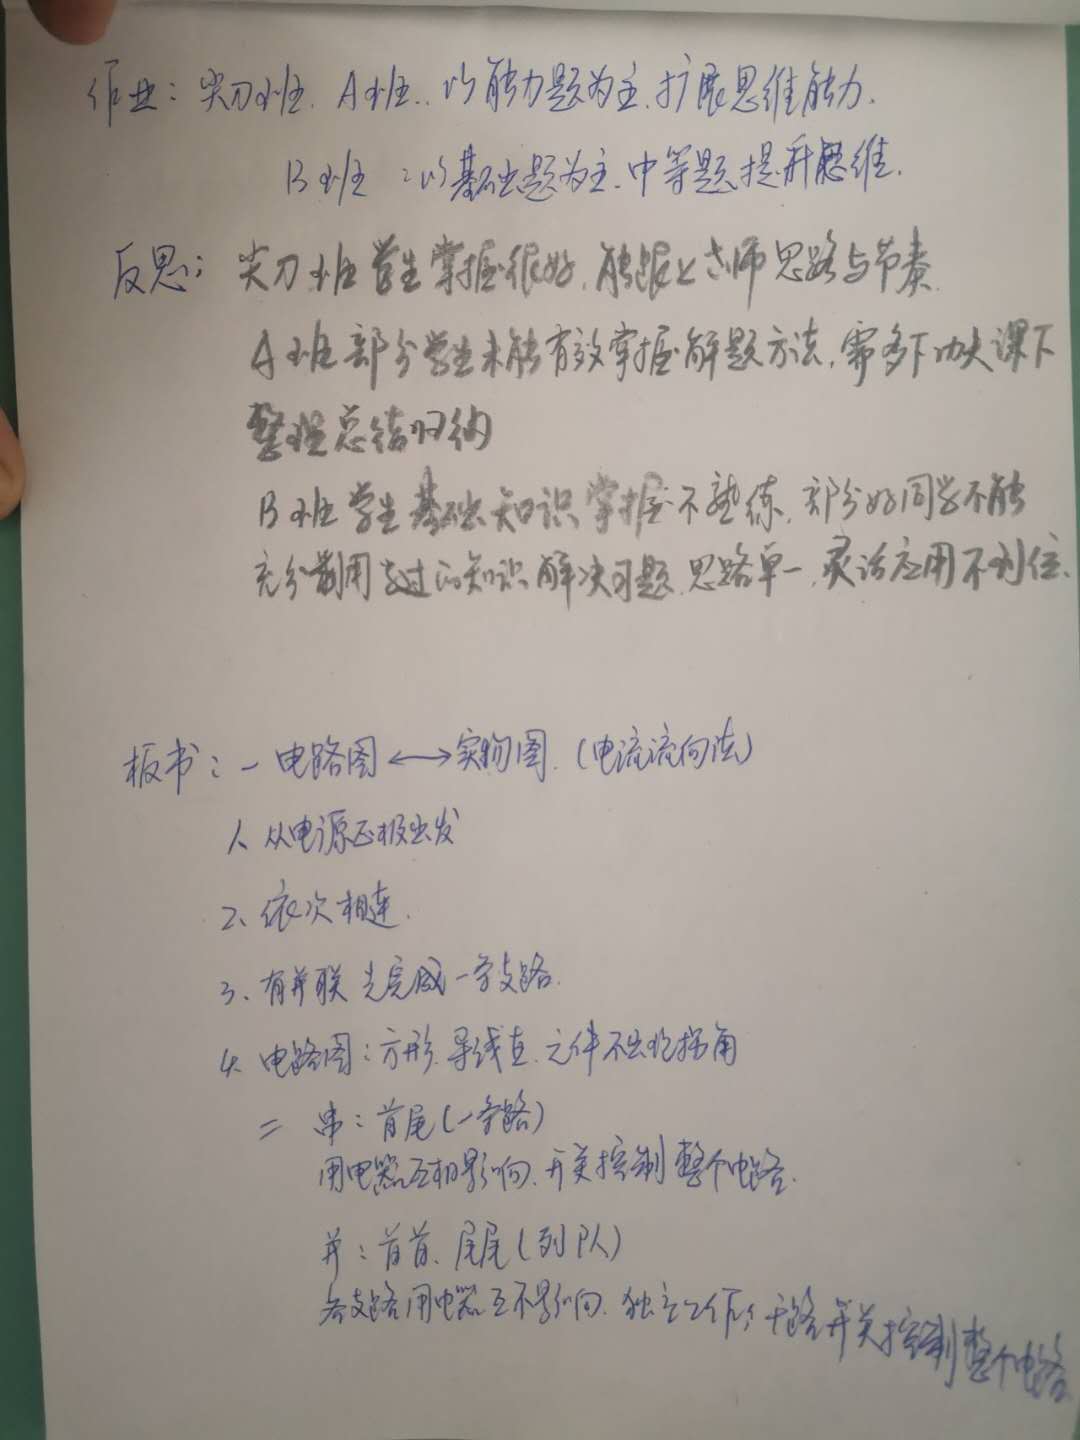 作业：尖刀班、A班：以能力题为主，扩展思维能力.
B班：以基础题为主，中等题提升思维.
反思：尖刀班学生掌握很好，能跟上老师思路与节奏.
A班部分学生未能有效掌握解题方法，需多下功夫课下
整理总结归纳
B班学生基础知识掌握不熟练，部分好同学不能
充分利用学过的知识解决习题，思路单一，灵活应用不到位、
板书：一 电路图 ←→ 实物图.（电流流向法）
1、从电源正极出发
2、依次相连.
3、有并联 先完成一条支路.
4、电路图：方形、导线直、元件不出现拐角
二 串：首尾（一条路）
用电器互相影响，开关控制整个电路.
并：首首、尾尾（列队）
各支路用电器互不影响，独立工作；干路开关控制整个电路